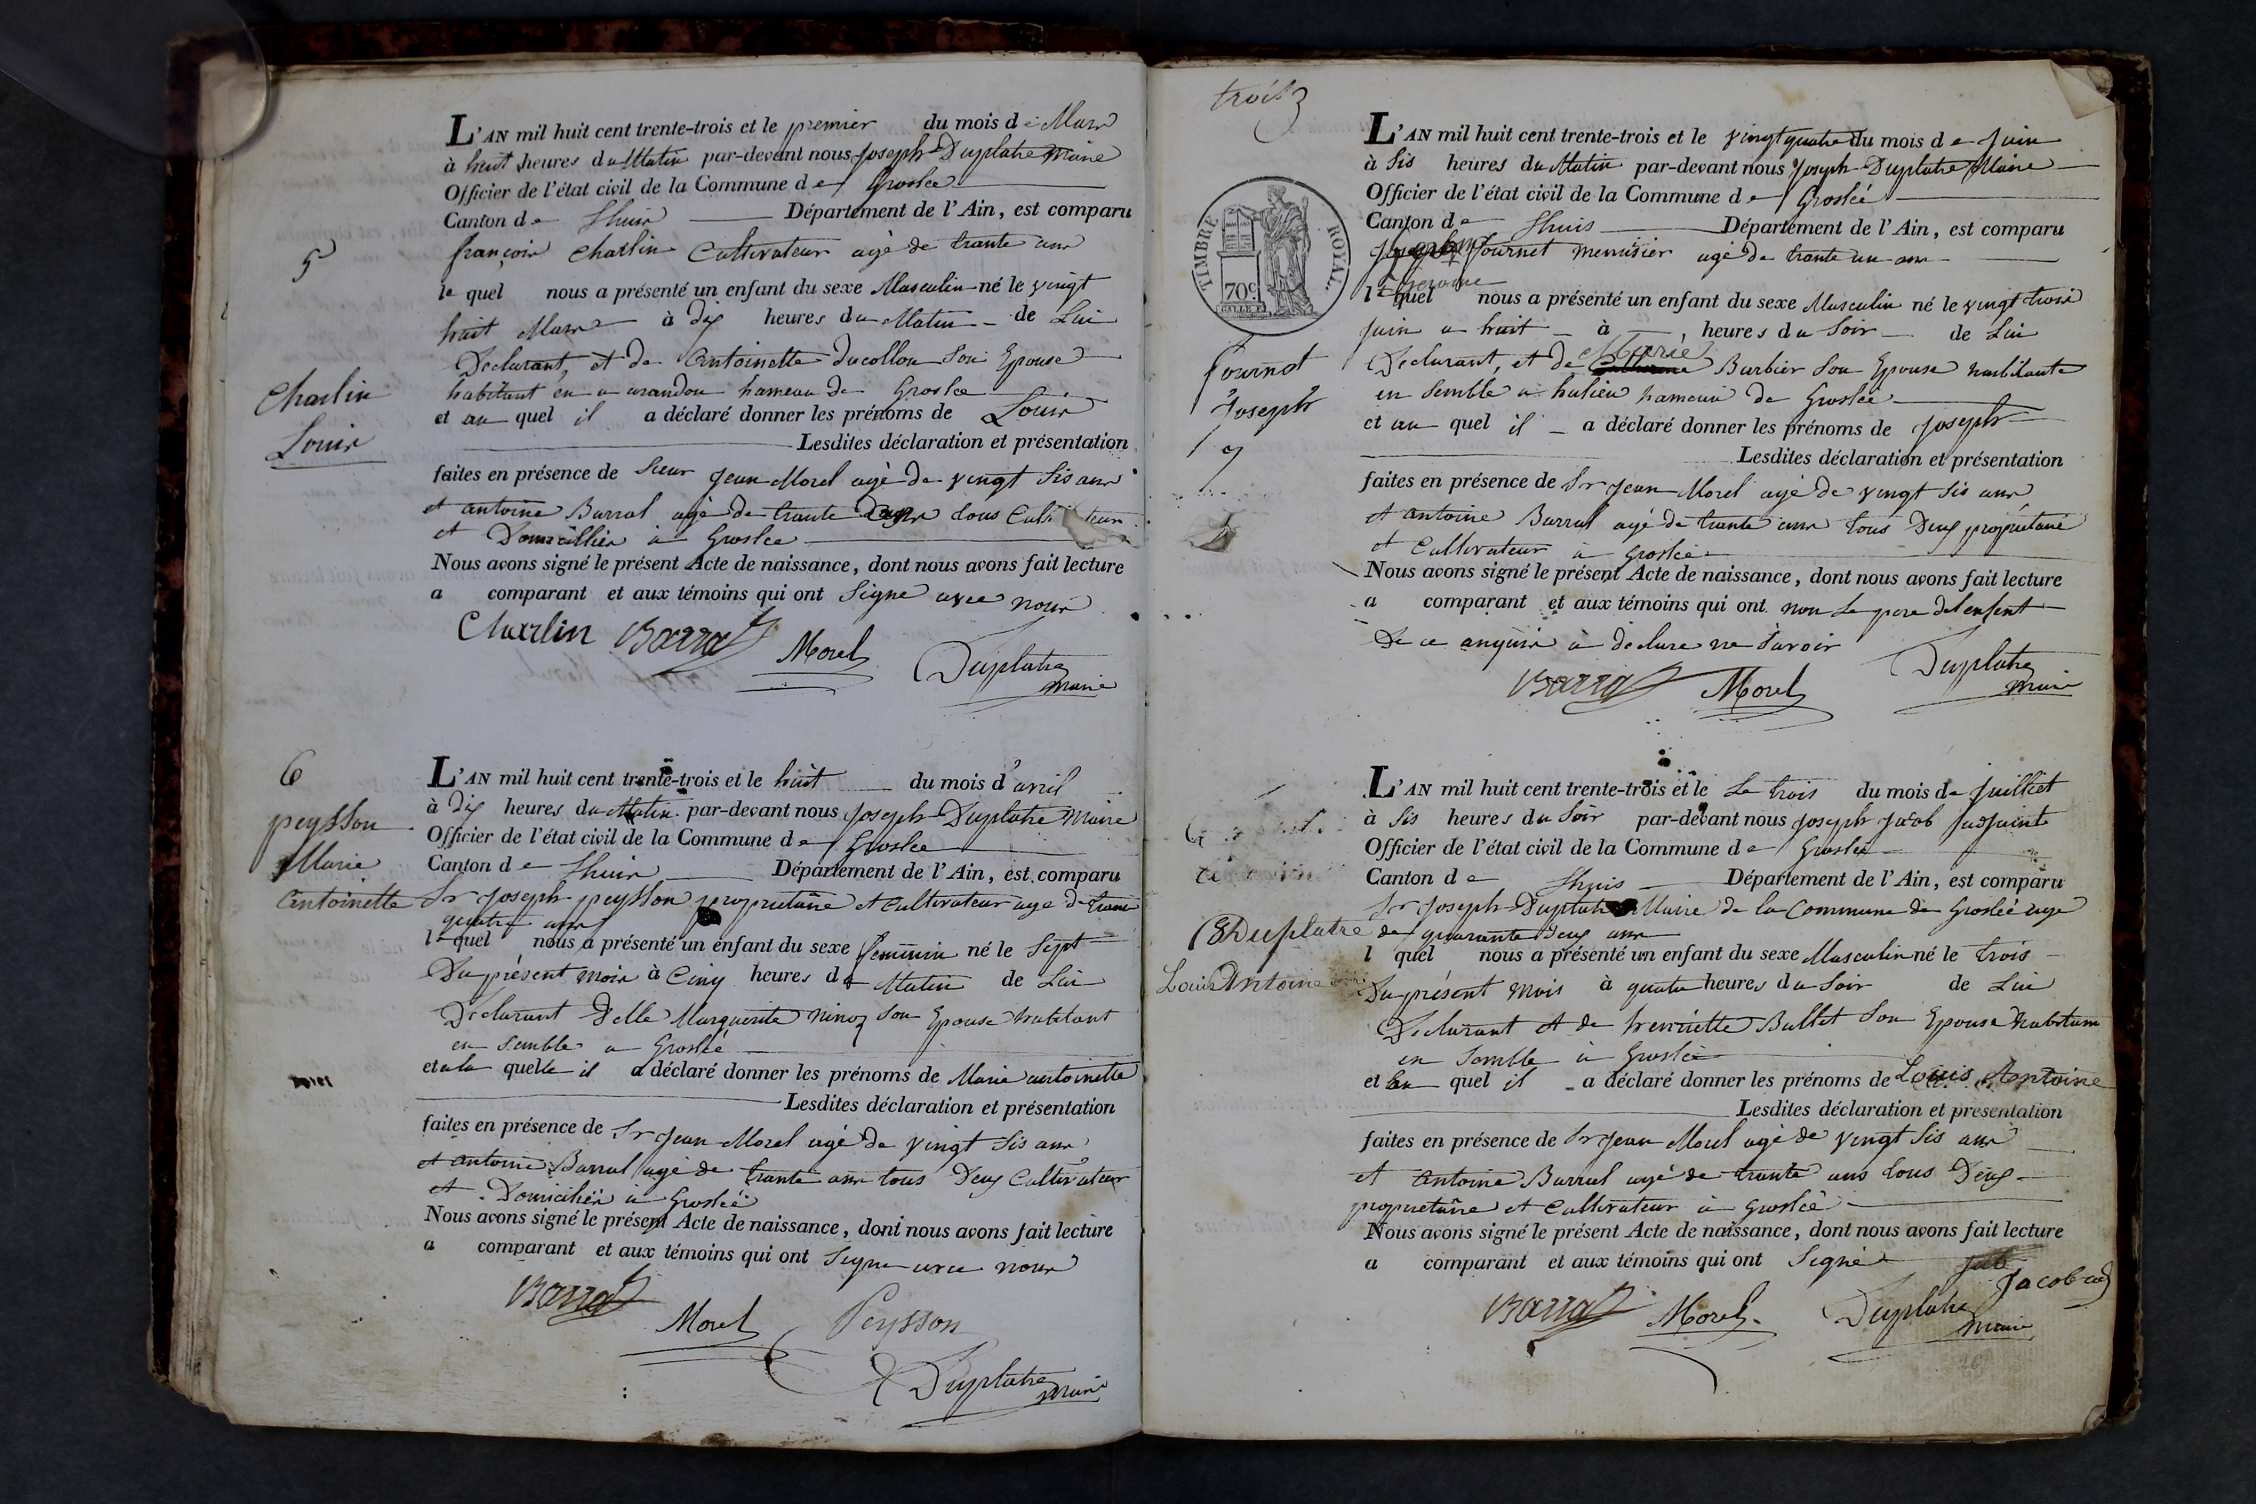 5
Charlin
Louis
L'AN mil huit cent trente-trois et le premier du mois de Mars
à huit heures du Matin par-devant nous Joseph Duplatre Maire
Officier de l'état civil de la Commune de Groslee
Canton de Lhuis Département de l'Ain, est comparu
françois Charlin Cultivateur agé de trante ans
le quel nous a présenté un enfant du sexe Masculin né le vingt
huit Mars à dix heures du Matin de Lui
Declarant, et de Antoinette ducollou Son Epouse
habitant en a arandou hameau de Groslee
et au quel il a déclaré donner les prénoms de Louis
Lesdites déclaration et présentation
faites en présence de Sieur Jean Morel agé de vingt Sis ans
et antoine Barral agé de trante ans tous
et Domicilliés à Groslee
Nous avons signé le présent Acte de naissance, dont nous avons fait lecture
a comparant et aux témoins qui ont Signe avec nous
Charlin Barral Morel Duplatre
Maire
6
peysson
Marie
Antoinette
L'AN mil huit cent trente-trois et le huit du mois d'avril
à dix heures du Matin par-devant nous Joseph Duplatre Maire
Officier de l'état civil de la Commune de Groslee
Canton de Lhuis Département de l'Ain, est comparu
Sr Joseph peysson proprietaire et Cultivateur age de trante
quatre ans
le quel nous a présenté un enfant du sexe feminin né le Sept
Du présent mois à Cinq heures du Matin de Lui
Declarant Delle Marguerite ninoz Son Epouse habitant
en Semble a Groslée
et a la quelle il a déclaré donner les prénoms de Marie antoinette
Lesdites déclaration et présentation
faites en présence de Sr Jean Morel agé de vingt Sis ans
et antoine Barral agé de trante ans tous Deux Cultivateur
et Domiciliés à Groslée
Nous avons signé le présent Acte de naissance, dont nous avons fait lecture
a comparant et aux témoins qui ont Signe avec nous
Barral Morel Peysson
Duplatre
Maire
trois 3
TIMBRE ROYAL.
70c.
fournet
Joseph
7
L'AN mil huit cent trente-trois et le vingt quatre du mois de Juin
à Sis heures du Matin par-devant nous Joseph Duplatre Maire
Officier de l'état civil de la Commune de Groslée
Canton de Lhuis Département de l'Ain, est comparu
fournet menuisier agé de trante un ans
Jerome
le quel nous a présenté un enfant du sexe Masculin né le vingt trois
Juin a huit à heures du Soir de Lui
Marie
Declarant, et de Barbier Son Epouse habitante
en Semble a hameau de Groslée
et au quel il a déclaré donner les prénoms de Joseph
Lesdites déclaration et présentation
faites en présence de Sr Jean Morel agé de vingt Sis ans
et antoine Barral agé de trante ans tous Deux propriétaire
et Cultivateur à Groslée
Nous avons signé le présent Acte de naissance, dont nous avons fait lecture
a comparant et aux témoins qui ont non Le pere de Lenfent
De ce anquis à déclare ne Savoir
Barral Morel Duplatre
Maire
8 Duplatre
Louis Antoine
L'AN mil huit cent trente-trois et le Le trois du mois de Juilliet
à Sis heures du Soir par-devant nous Joseph Jacob
Officier de l'état civil de la Commune de Groslée
Canton de Lhuis Département de l'Ain, est comparu
Sr Joseph Duplatre Maire de la Commune de Groslée age
de quarante deux ans
l quel nous a présenté un enfant du sexe Masculin né le trois
Du présent mois à quatre heures du Soir de Lui
Declarant et de henriette Ballet Son Epouse habitant
en Semble à Groslée
et au quel il a déclaré donner les prénoms de Louis Antoine
Lesdites déclaration et présentation
faites en présence de Sr Jean Morel agé de vingt Sis ans
et antoine Barral agé de trante ans tous Deux
proprietaire et Cultivateur à Groslée
Nous avons signé le présent Acte de naissance, dont nous avons fait lecture
a comparant et aux témoins qui ont Signé
Jacob adj
Barral Morel Duplatre
Maire